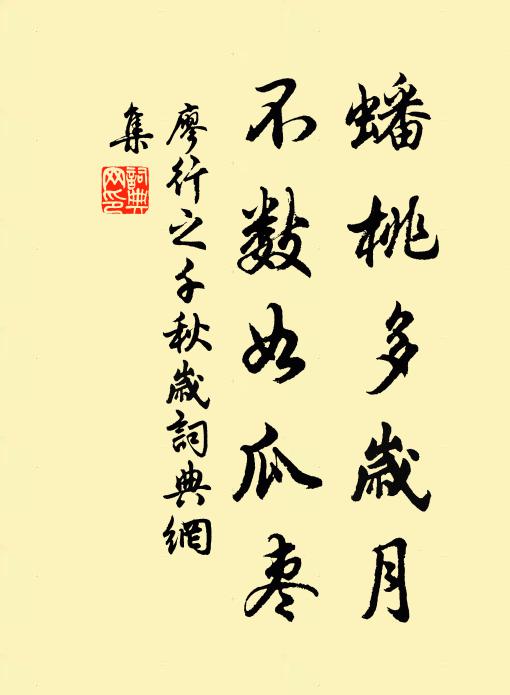 蟠桃多歲月
不數如瓜棗
廖行之千秋歲詞典網
集
詞典
網印